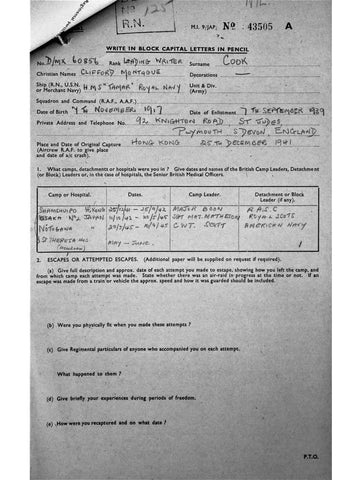 R.N.
M.I. 9/JAP/ No 43505 A
WRITE IN BLOCK CAPITAL LETTERS IN PENCIL
No. D/MX 60856 Rank LEADING WRITER Surname COOK
Christian Names CLIFFORD MONTAGUE Decorations —
Ship (R.N., U.S.N. or Merchant Navy) HMS "TAMAR" ROYAL NAVY Unit & Div. (Army)
Squadron and Command (R.A.F., A.A.F.)
Date of Birth 7TH NOVEMBER 1917 Date of Enlistment 7TH SEPTEMBER 1939
Private Address and Telephone No. 92 KNIGHTON ROAD ST JUDES
PLYMOUTH S DEVON, ENGLAND
Place and Date of Original Capture HONG KONG 25TH DECEMBER 1941
(Aircrew R.A.F. to give place and date of a/c crash).
1. What camps, detachments or hospitals were you in? Give dates and names of the British Camp Leaders, Detachment (or Block) Leaders or, in the case of hospitals, the Senior British Medical Officers.
Camp or Hospital. Dates. Camp Leader. Detachment or Block Leader (if any).
SHAMSHUIPO H. KONG MAJOR BOON R.A.S.C
OSAKA No 2 JAPAN SGT MJT. MATHESON ROYAL SCOTS
NOTOGAWA " C.W.T. SCOTT AMERICAN NAVY
ST THERESA HOS MAY – JUNE.
2. ESCAPES OR ATTEMPTED ESCAPES. (Additional paper will be supplied on request if required).
(a) Give full description and approx. date of each attempt you made to escape, showing how you left the camp, and from which camp each attempt was made. State whether there was an air-raid in progress at the time or not. If an escape was made from a train or vehicle the approx. speed and how it was guarded should be included.
(b) Were you physically fit when you made these attempts?
(c) Give Regimental particulars of anyone who accompanied you on each attempt.
What happened to them?
(d) Give briefly your experiences during periods of freedom.
(e) How were you recaptured and on what date?
P.T.O.